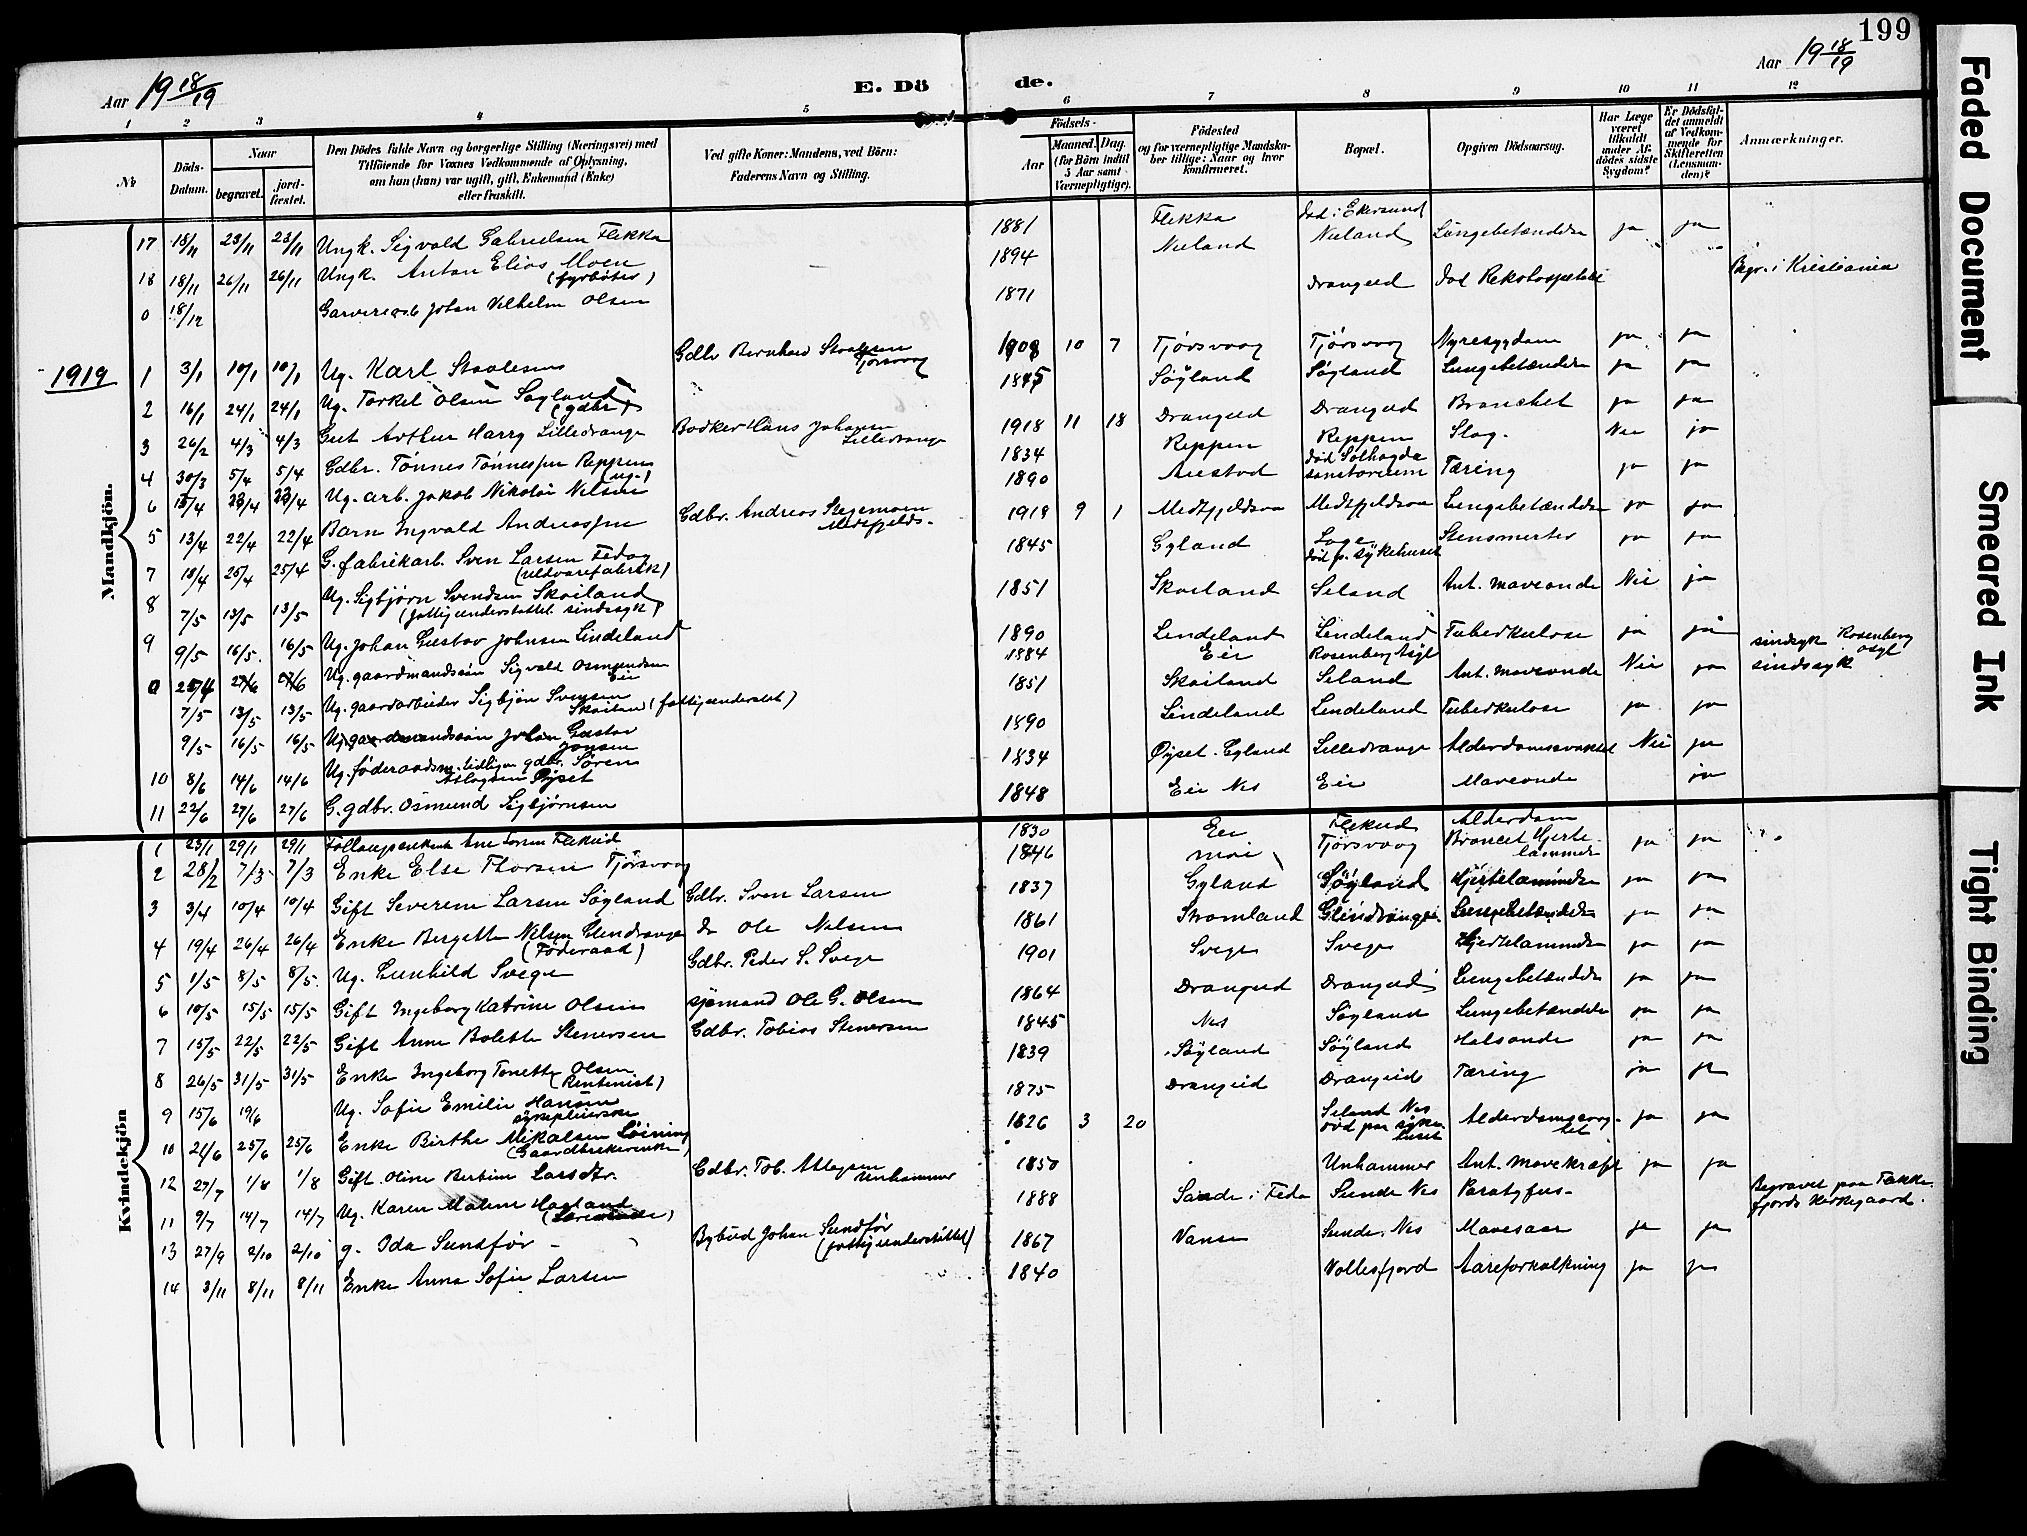 199
Aar 19 18/19
E. Döde.
Aar 19 18/19
1 2 3 4 5 6 7 8 9 10 11 12
№
Döds-Datum.
Naar
begravet.
jord-fæstet.
Den Dödes fulde Navn og borgerlige Stilling (Næringsvei) med
Tilföiende for Voxnes Vedkommende af Oplysning,
om hun (han) var ugift, gift, Enkemand (Enke)
eller fraskilt.
Ved gifte Koner: Mandens, ved Börn:
Faderens Navn og Stilling.
Födsels-
Aar
Maaned. Dag.
(for Börn indtil
5 Aar samt
Værnepligtige).
Födested
og for værnepligtige Mandska-
ber tillige: Naar og hvor
konfirmeret.
Bopæl.
Opgiven Dödsaarsag.
Har Læge
været
tilkaldt
under Af-
dödes sidste
Sygdom?
Er Dödsfal-
det anmeldt
af Vedkom-
mende for
Skifteretten
(Lensman-
den)?
Anmærkninger.
Mandkjön.
17 18/11 23/11 23/11 Ungk. Sigvald Gabrielsen Flikka 1881 Flikka Död i Ekersund
18 18/11 26/11 26/11 Ungk. Anton Elias Moen (fyrböter) 1894 Nuland Nuland Lungebetændelse ja ja
0 18/12 Garveriarb Johan Vilhelm Olsen 1871 Drangeid Begr. i Kristiania
1919
1 3/1 10/1 10/1 Ug. Karl Staalesen Gdbr Bernhard Staalesen Tjörsvaag 1908 10 7 Tjörsvaag Tjörsvaag Nyresygdom ja ja
2 16/1 24/1 24/1 Ug. Torkel Olsen Søyland (gdbr) 1845 Söyland Söyland Lungebetændelse ja ja
3 26/2 4/3 4/3 Gut Arthur Harry Lilledrange Bödker Hans Johansen Lilledrange 1918 11 18 Drangeid Drangeid Bronchet ja ja
4 30/3 5/4 5/4 Gdbr. Tönnes Tönnessen Reppen (ug.) 1834 Reppen Reppen Slag. Nei ja
6 15/4 23/4 23/4 Ug. arb. Jakob Nikolai Nilsen 1890 Austad död Sølhøgda sanatorium Tæring ja ja
5 13/4 22/4 22/4 Barn Ingvald Andreassen Gdbr. Andreas Stegemoen Medfjeldsaa 1918 9 1 Medfjeldsaa Medfjeldsaa Lungebetændelse ja ja
7 18/4 25/4 25/4 G. fabrikarb. Sven Larsen Fedog (uldvarefabrik) 1845 Gyland Loge död p. sykehuset Stensmerter ja ja
8 7/5 13/5 13/5 Ug. Sigbjörn Svendsen Skoiland (fattigunderstøttet sindssyk) 1851 Skoiland Seland Ant. maveonde Nei ja
9 9/5 16/5 16/5 Ug. Johan Gustav Johnsen Lindeland 1890 Lindeland Lindeland Tuberkulose ja ja
0 Ug. gaardmandssön Sigvald Osmundsen Eie 1884 Eie Rosenberg Asyl sindsyk Rosenberg asyl
7/5 13/5 13/5 Ug. gaardarbeider Sigbjörn Svensen Skoiland (fattigunderstøt) 1851 Skoiland Seland Ant. maveonde Nei ja sindssyk
9/5 16/5 16/5 Ug. gaardmandssön Johan Gustav Jonsen 1890 Lindeland Lindeland Tuberkulose ja ja
10 8/6 14/6 14/6 Ug. föderaadsm. tidligere gdbr. Sören Atlogsen Öyset 1834 Öyset. Gyland Lilledrange Alderdomssvakhet Nei ja
11 22/6 27/6 27/6 G. gdbr. Osmund Sigbjörnsen 1848 Eie Nes Eie Maveonde ja
Kvindekjön
1 23/1 29/1 29/1 1830 Eie Flikeid Alderdom
2 28/2 7/3 7/3 Enke Else Thorsen Tjörsvaag 1846 Moi Tjörsvaag Broncet Hjertelammelse ja ja
3 3/4 10/4 10/4 Gift Severine Larsen Söyland Gdbr. Sven Larsen 1837 Gyland Söyland Hjertelammelse ja ja
4 19/4 26/4 26/4 Enke Bergette Nilsen Glendrange (Föderaad) do Ole Nilsen 1861 Stromland Glendrange Lungebetændelse ja ja
5 1/5 8/5 8/5 Ug. Gunhild Svege Gdbr. Peder S. Svege 1901 Svege Svege Hjertelammelse ja ja
6 10/5 15/5 15/5 Gift Ingeborg Katrine Olsen sjömand Ole G. Olsen 1864 Drangeid Drangeid Lungebetændelse ja ja
7 15/5 22/5 22/5 Gift Anne Bolette Stenersen Gdbr. Tobias Stenersen 1845 Nes Søyland Lungebetændelse ja ja
8 26/5 31/5 31/5 Enke Ingeborg Tonette Olsen (Rentenist) 1839 Söyland Söyland Halsonde ja ja
9 15/6 19/6 Ug. Sofie Emilie Hansen sykepleierske 1875 Drangeid Drangeid Tæring ja ja
10 21/6 25/6 25/6 Enke Birthe Mikalsen Löining (Gaardbrukerenke) 1826 3 20 Seland Nes död paa sykehuset Alderdomssvaghet ja ja
12 27/7 1/8 1/8 Gift Oline Bertine Larsdtr. Gdbr. Tob. Atlagsen Unhammer 1850 Unhammer Ant. Mavekræft ja ja
11 9/7 14/7 14/7 Ug. Karen Malene Hagland 1888 Sande i Feda Sunde Nes Paratyfus Begravet paa Fækkefjords Kirkegaard.
13 27/9 2/10 2/10 g. Oda Sundför Bybud Johan Sundför (fattigunderstöttet) 1867 Vanse Sunde. Nes Mavesaar ja ja
14 3/11 8/11 8/11 Enke Anna Sofie Larsen 1840 Vollesfjord Aareforkalkning ja ja
Faded Document
Smeared Ink
Tight Binding